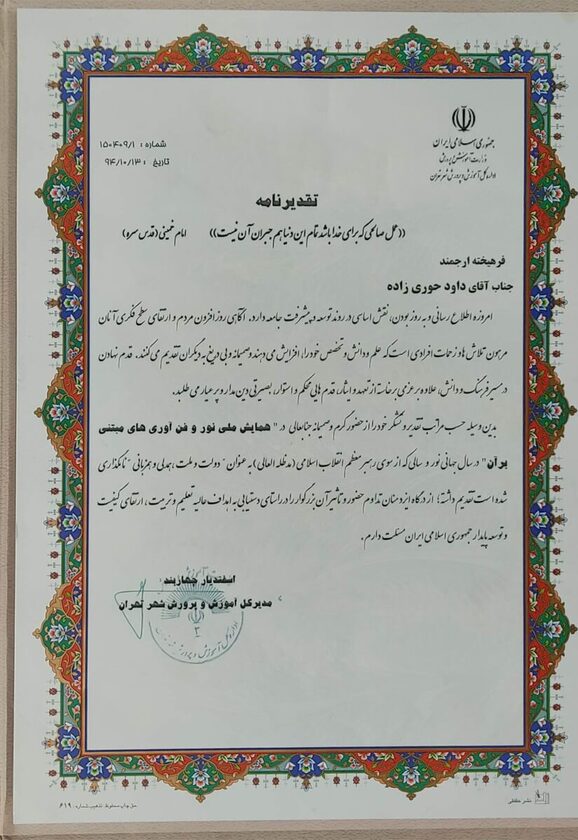 جمهوری اسلامی ایران
وزارت آموزش و پرورش
اداره کل آموزش و پرورش شهر تهران
شماره : ۱۵۰۴۰۹/۱
تاریخ : ۹۴/۱۰/۱۳
تقدیرنامه
((عمل صالحی که برای خدا باشد تمام این دنیا هم جبران آن نیست)) امام خمینی (قدس سره)
فرهیخته ارجمند
جناب آقای داود حوری زاده
امروزه اطلاع رسانی و به روز بودن، نقش اساسی در روند توسعه و پیشرفت جامعه دارد. آگاهی روز افزون مردم و ارتقای سطح فکری آنان
مرهون تلاش ها و زحمات افرادی است که علم و دانش و تخصص خود را، افزایش می دهند و صمیمانه و بی دریغ به دیگران تقدیم می کنند. قدم نهادن
در مسیر فرهنگ و دانش، علاوه بر عزمی برخاسته از تعهد و ایثار، قدم هایی محکم و استوار، بصیرتی دین مدار و پر عیار می طلبد.
بدین وسیله حسب مراتب تقدیر و تشکر خود را از حضور گرم و صمیمانه جنابعالی در " همایش ملی نور و فن آوری های مبتنی
بر آن " در سال جهانی نور و سالی که از سوی رهبر معظم انقلاب اسلامی (مدظله العالی) به عنوان " دولت و ملت، همدلی و همزبانی " نامگذاری
شده است تقدیم داشته؛ از درگاه ایزد منان تداوم حضور و تاثیر آن بزرگوار را در راستای دستیابی به اهداف عالیه تعلیم و تربیت، ارتقای کیفیت
و توسعه پایدار جمهوری اسلامی ایران مسئلت دارم.
اسفندیار چهاربند
مدیرکل آموزش و پرورش شهر تهران
۲
نشر حقوقی
حق چاپ محفوظ. تذهیب شماره: ۶۱۹